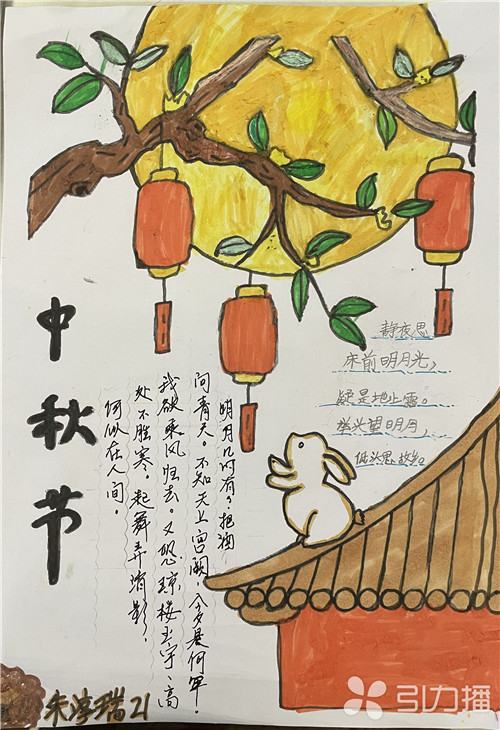 中秋节
静夜思
床前明月光，
疑是地上霜。
举头望明月，
低头思故乡。
明月几时有？把酒
问青天。不知天上宫阙，今夕是何年。
我欲乘风归去。又恐琼楼玉宇、高
处不胜寒。起舞弄清影，
何似在人间。
朱淳瑞21
引力播